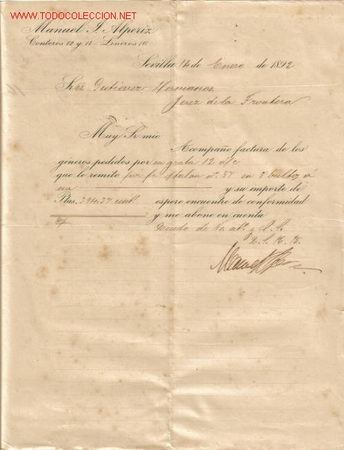 WWW.TODOCOLECCION.NET
Manuel J. Alpériz
Conteros 12 y 14 - Lineros 10
Sevilla 16 de Enero de 1892
Sres Gutierrez Hermanos
Jerez de la Frontera
Muy Sr. mio
Acompaño factura de los
géneros pedidos por su grata 12 d/c
que le remito por fc talon nº 87 en 2 bultos
y su importe de
Ptas. 394,37 espero encuentre de conformidad
y me abone en cuenta